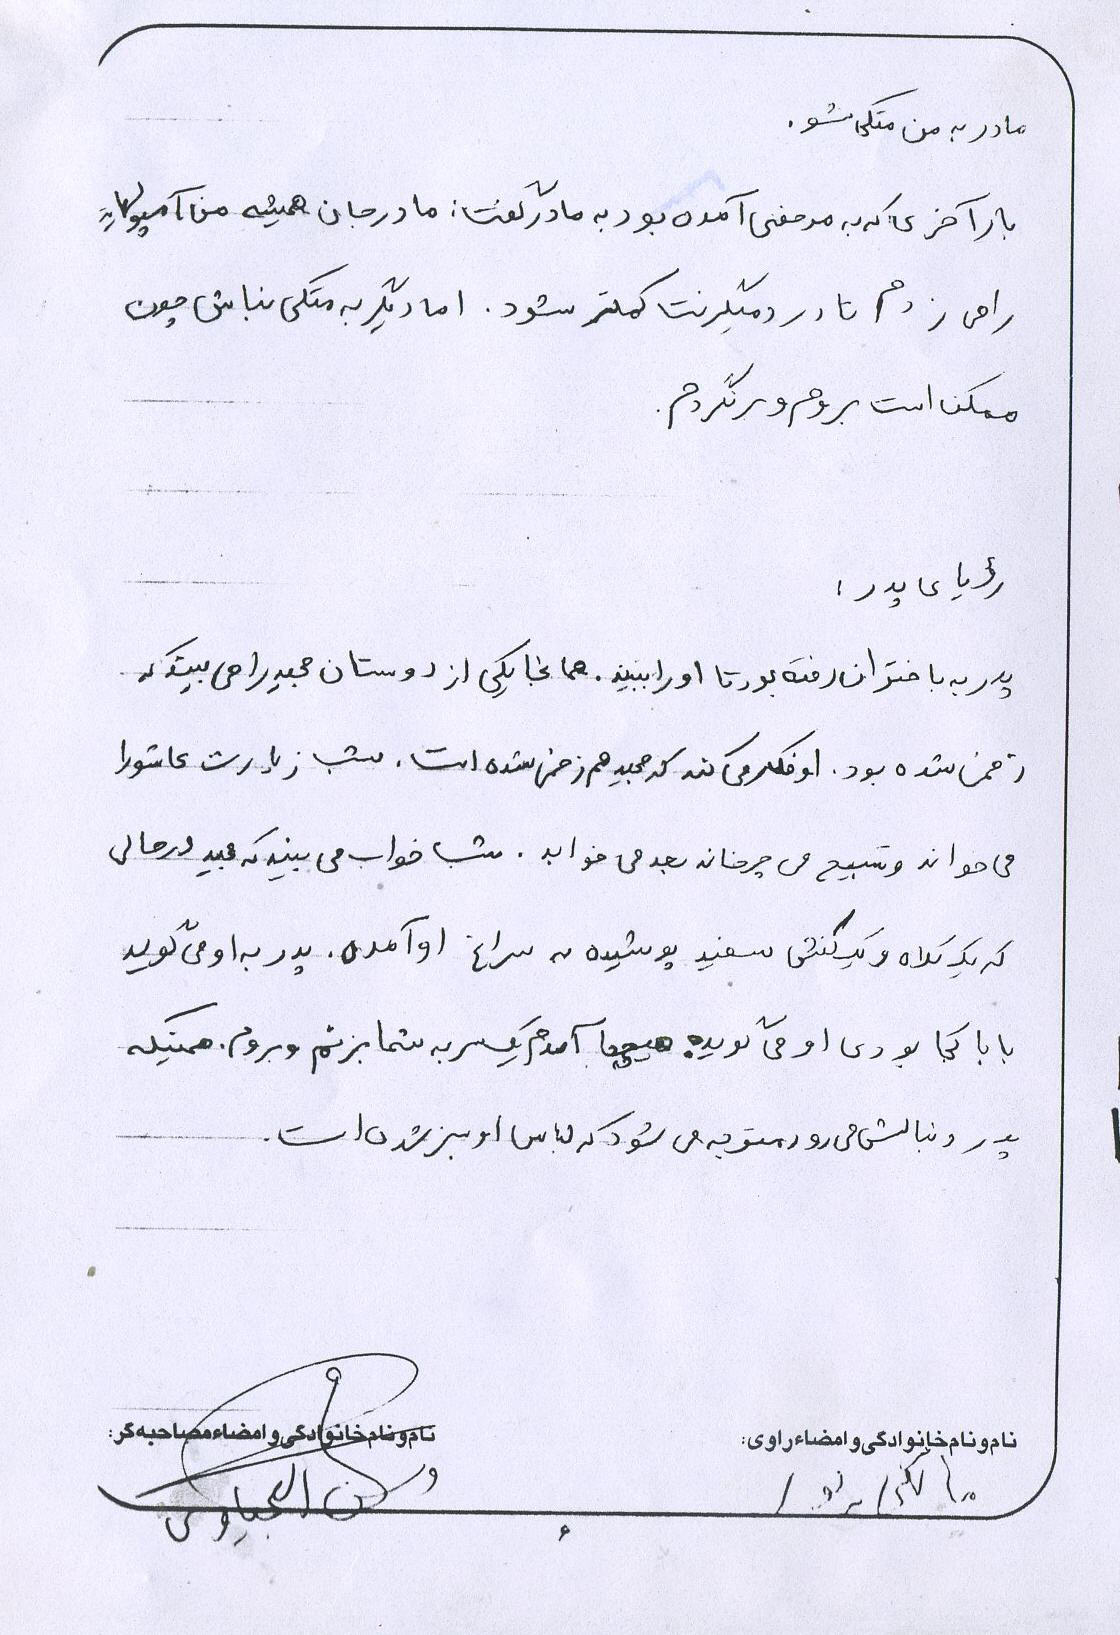 مادر به من متکی نشو.
بار آخری که به مرخصی آمده بود به مادرش گفت: مادر جان همیشه من آمپولهایت
را می زدم تا درد میگرنت کمتر شود. اما دیگر به متکی نباش چون
ممکن است بروم و برنگردم.
رؤیای پدر:
پدر به باختران رفته بود تا او را ببیند. همانجا یکی از دوستان مجید را می بیند که
زخمی شده بود. او فکر می کند که مجید هم زخمی شده است. شب زیارت عاشورا
می خواند و تسبیح می چرخاند بعد می خوابد. شب خواب می بیند که مجید در حالی
که یک کلاه و یک کفش سفید پوشیده به سراغ او آمده. پدر به او می گوید
بابا کجا بودی او می گوید: هیچ جا آمدم یک سر به شما بزنم و بروم. همینکه
پدر دنبالش می رود متوجه می شود که لباس او سبز شده است.
نام و نام خانوادگی و امضاء راوی:
نام و نام خانوادگی و امضاء مصاحبه گر:
۶